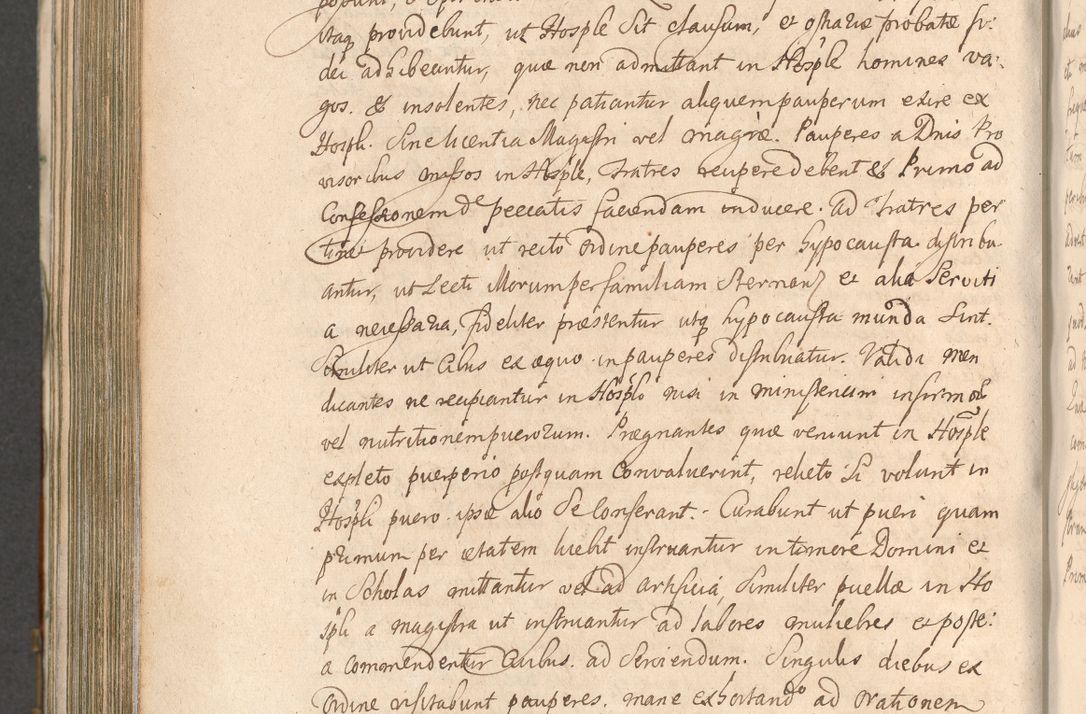 itaq providebunt, ut Hosple Sit clausum, et ostiariæ probatæ fi:
dei adhibeantur, quæ non admittant in Hosple homines va:
gos. & insolentes, nec patiantur aliquem pauperum exire ex
Hospli. Sine licentia Magistri vel magræ. Pauperes a Dnis Pro
visoribus missos in Hosple, Fratres recipere debent & Primo ad
Confessionem de peccatis faciendam inducere. Ad Fratres per
tinet providere ut recto Ordine pauperes per hypocausta distribu
antur, ut Lecti Morum per familiam Sternant et alia Serviti
a necessaria, fideliter præstentur utq hypocausta munda Sint.
Similiter ut Cibus ex æquo in pauperes distribuatur. Validi men
dicantes ne recipiantur in Hospli nisi in ministerium infirmor
vel nutritionem puerorum. Prægnantes quæ veniunt in Hosple
expleto puerperio postquam Convaluerint, relicto Si volunt in
Hospli puero ipsæ alio Se Conferant. Curabunt ut pueri quam
primum per ætatem licebit instruantur in timore Domini et
in Scholas mittantur vel ad artificia, Similiter puellæ in Ho
spli a magistra ut instruantur ad labores muliebres et poste:
a commendentur Civibus. ad Serviendum. Singulis diebus ex
Ordine visitabunt pauperes. mane exhortando ad Orationem